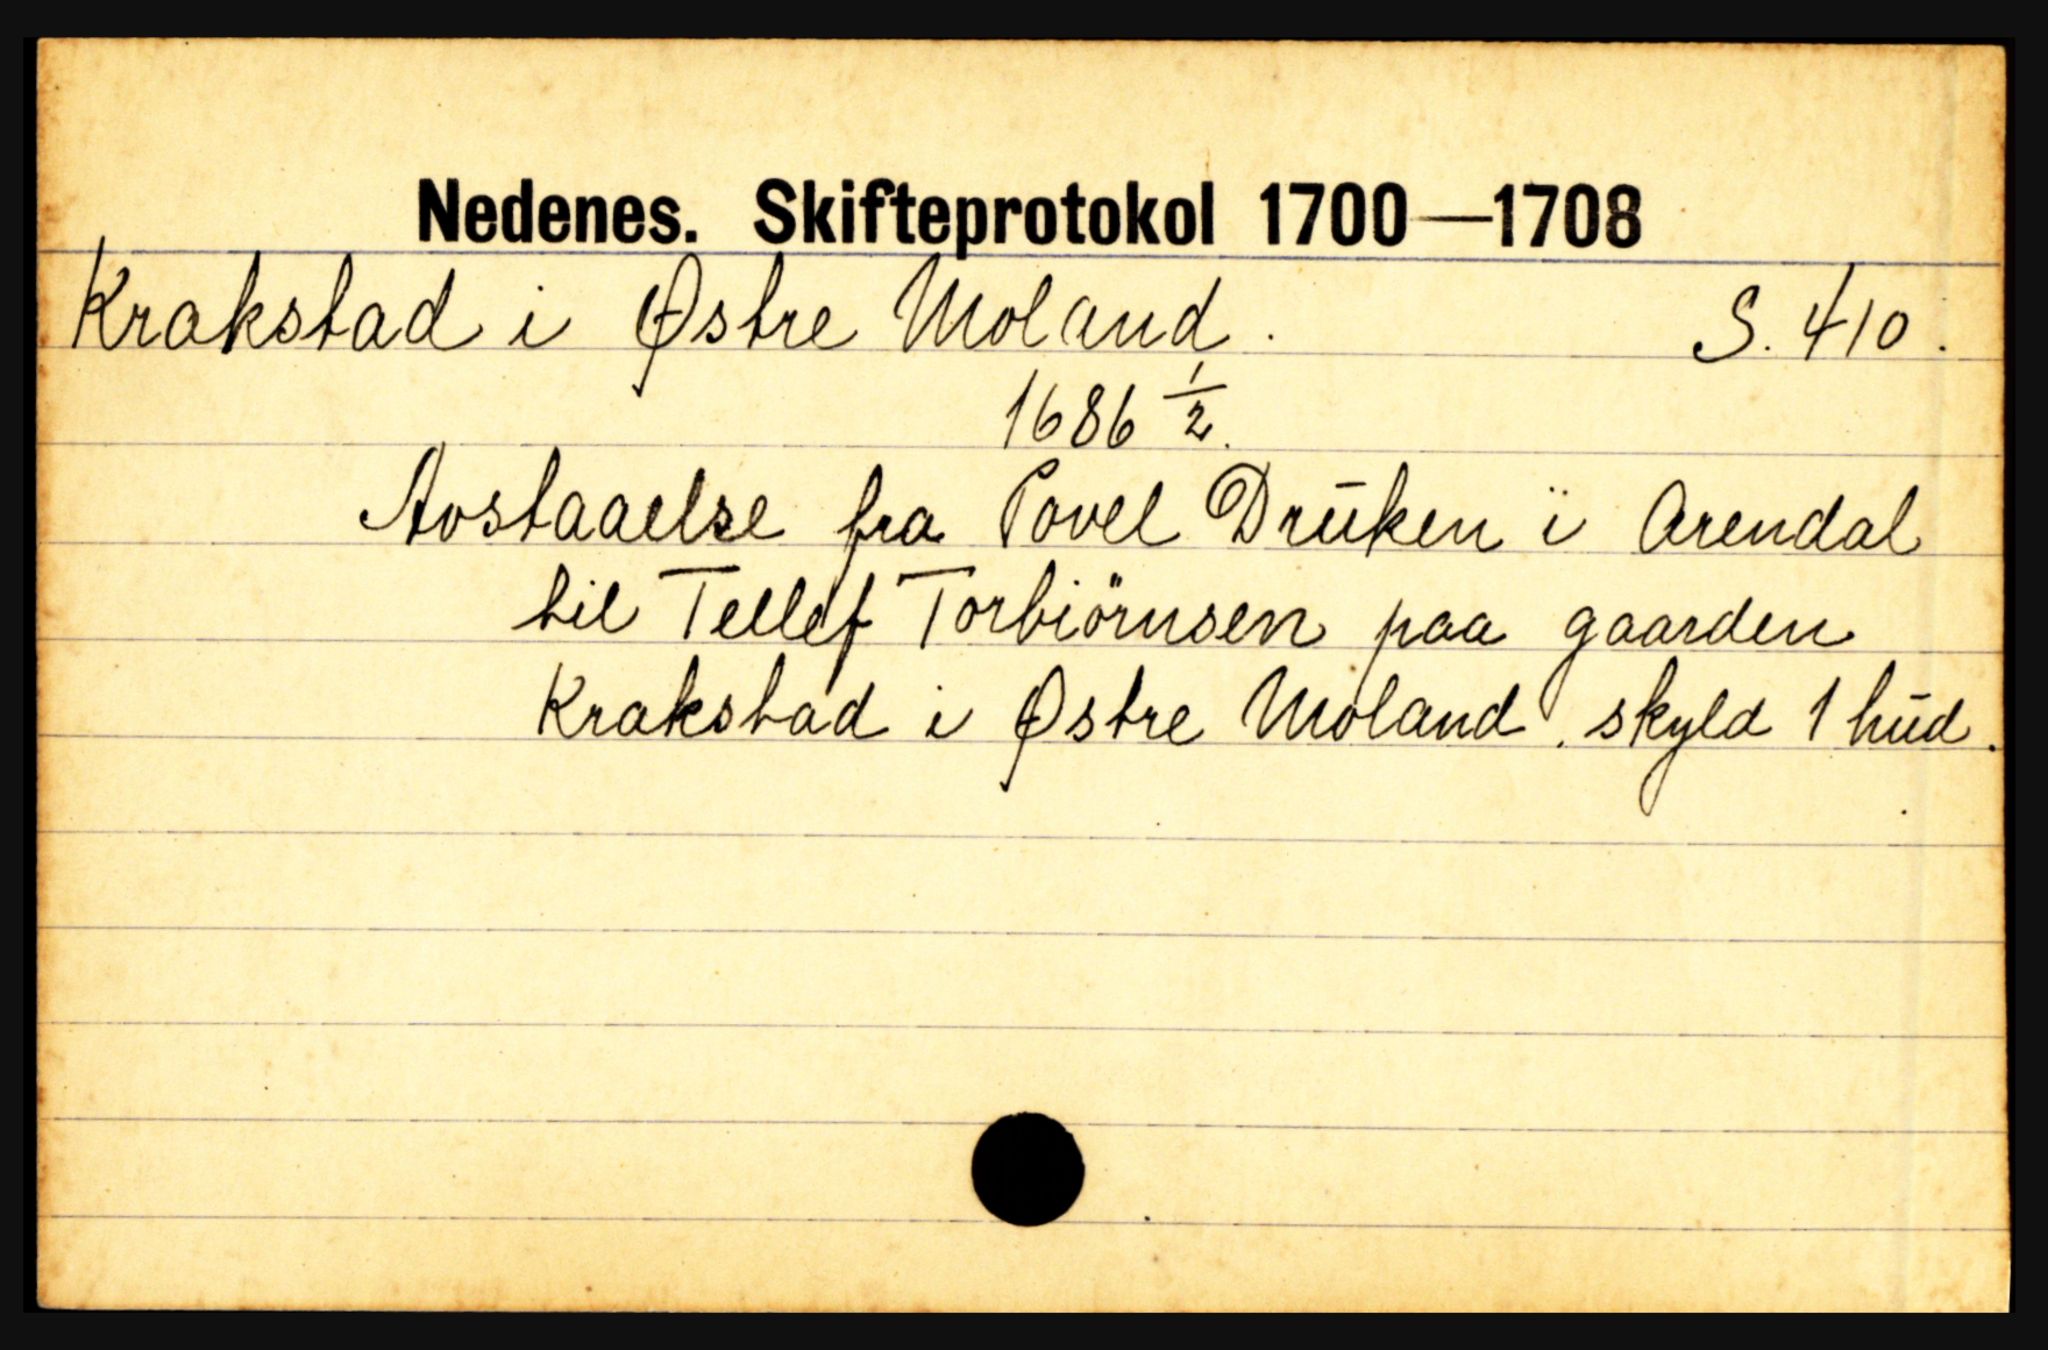 Nedenes. Skifteprotokol 1700—1708
Krakstad i Østre Moland. S. 410.
1686 1/2.
Avstaaelse fra Povel Drūken i Arendal
til Tellef Torbiörnsen paa gaarden
Krakstad i Østre Moland. skyld 1 hūd.